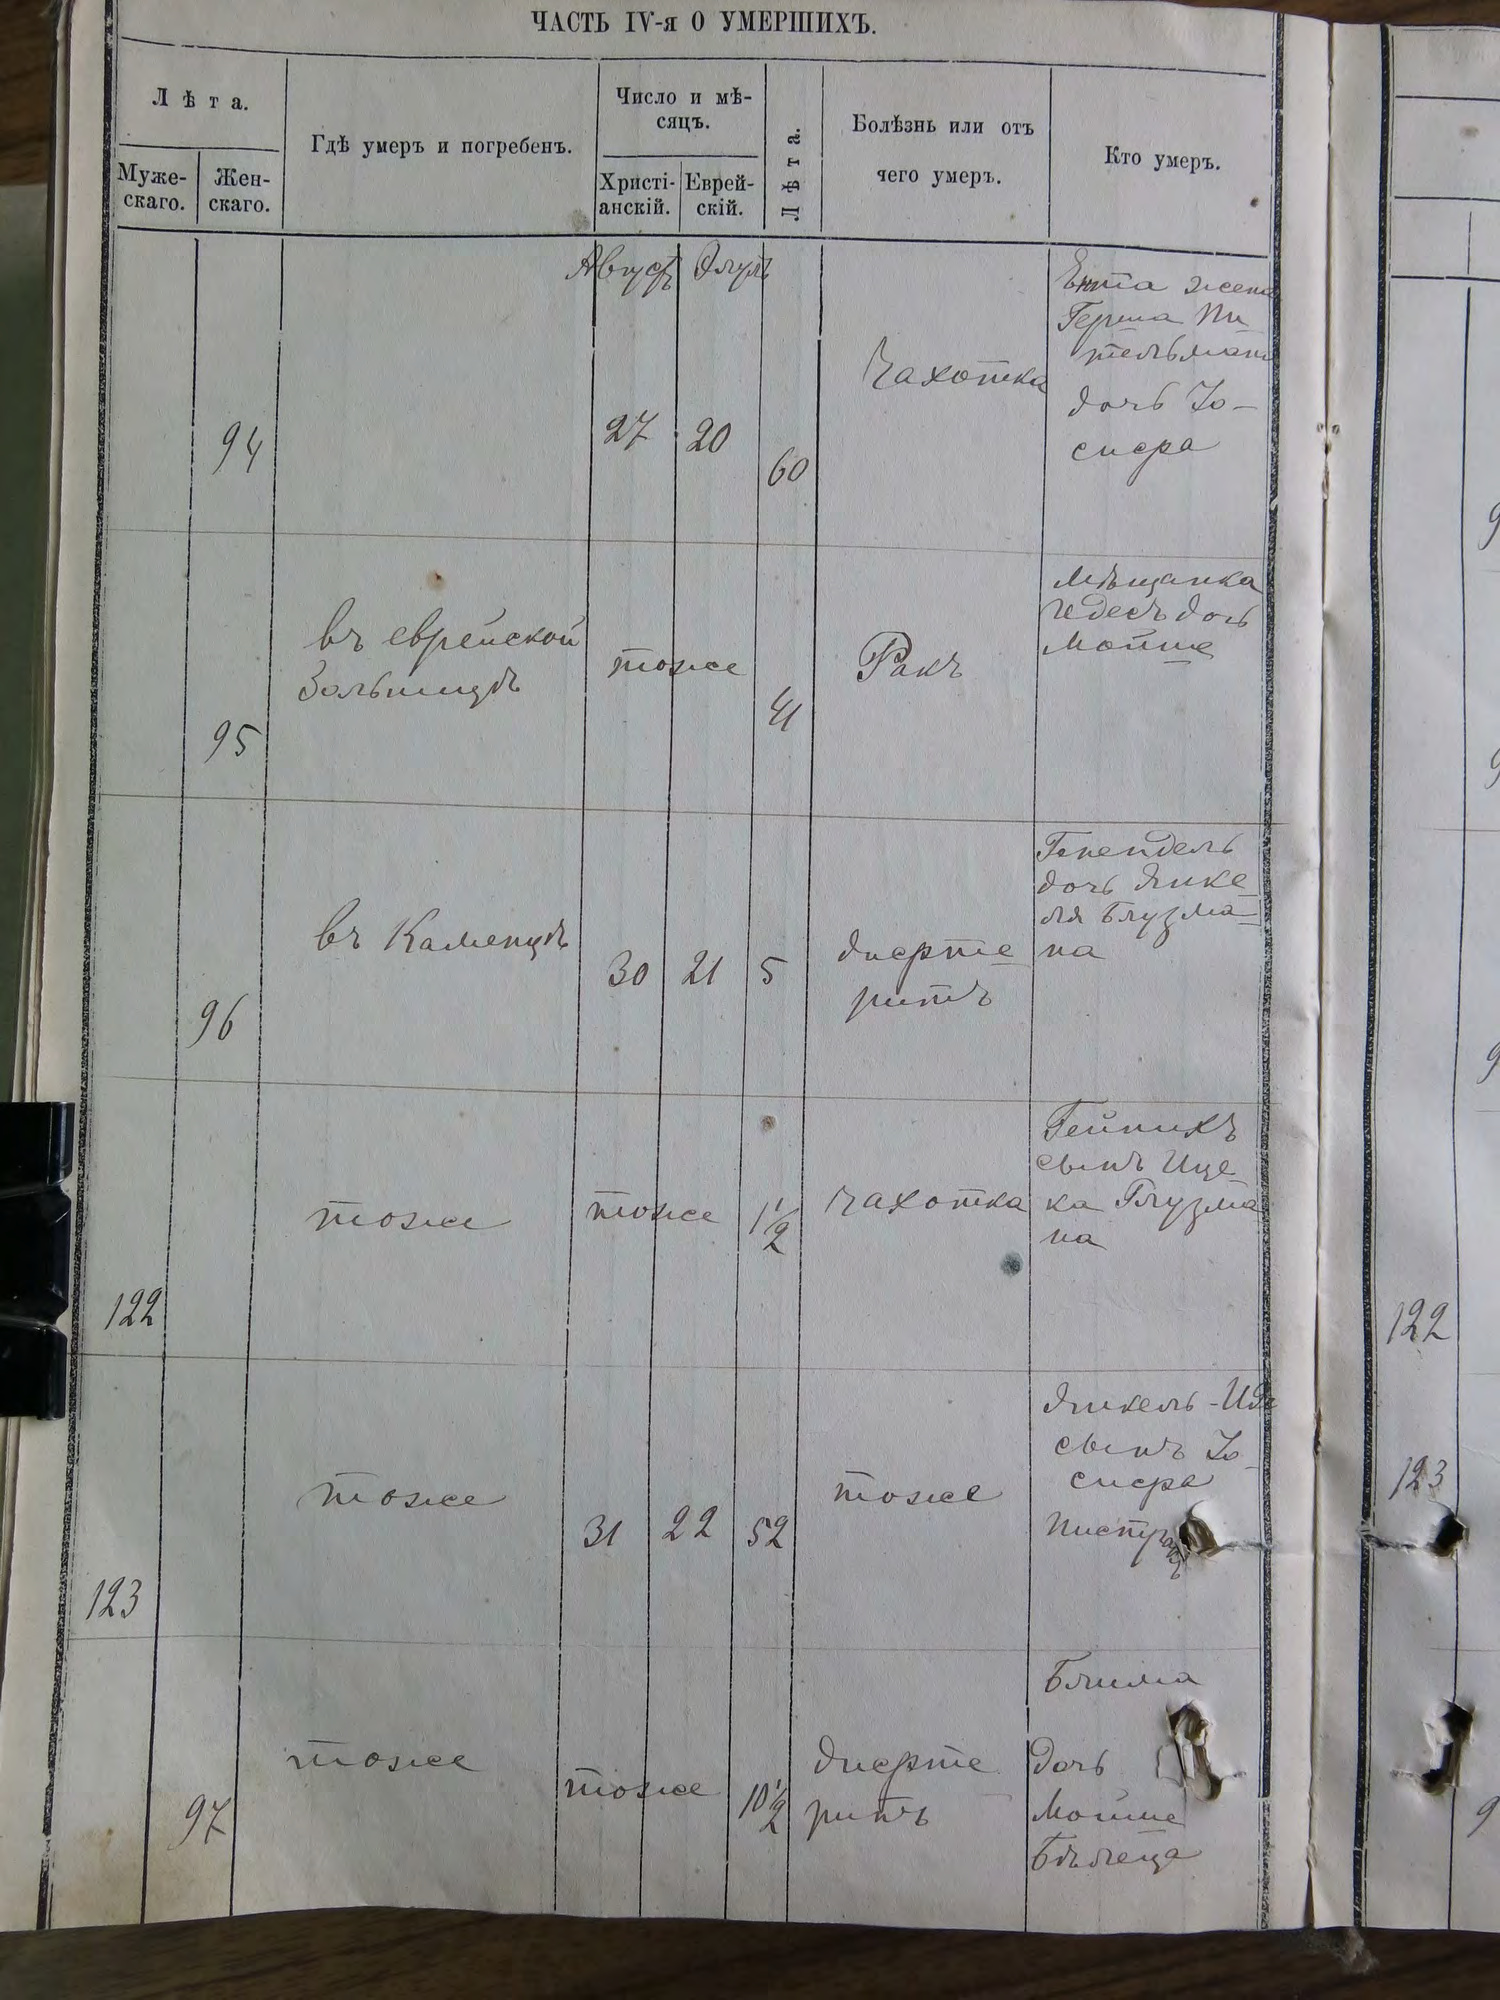 ЧАСТЬ IV-я О УМЕРШИХЪ.
Лѣта.
Муже-
скаго.
Жен-
скаго.
Гдѣ умеръ и погребенъ.
Число и мѣ-
сяцъ.
Христі-
анскій.
Еврей-
скій.
Лѣта.
Болѣзнь или отъ
чего умеръ.
Кто умеръ.
Августъ Элулъ
94
27
20
60
Чахотка
Ента жена
Герша Пи
тельмана
дочь Іо-
сифа
95
въ еврейской
больницѣ
тоже
41
Ракъ
Мѣщанка
дочь
Мойше
96
въ Каменцѣ
30
21
5
дифте-
ритъ
Гнендель
дочь Янке-
ля Глузма-
на
122
тоже
тоже
1 1/2
чахотка
Гейнихъ
сынъ Ице-
ка Глузма
на
123
тоже
31
22
52
тоже
Янкель-
сынъ Іо-
сифа
97
тоже
тоже
10 1/2
дифте
ритъ
Блима
дочь
Мойше
122
123